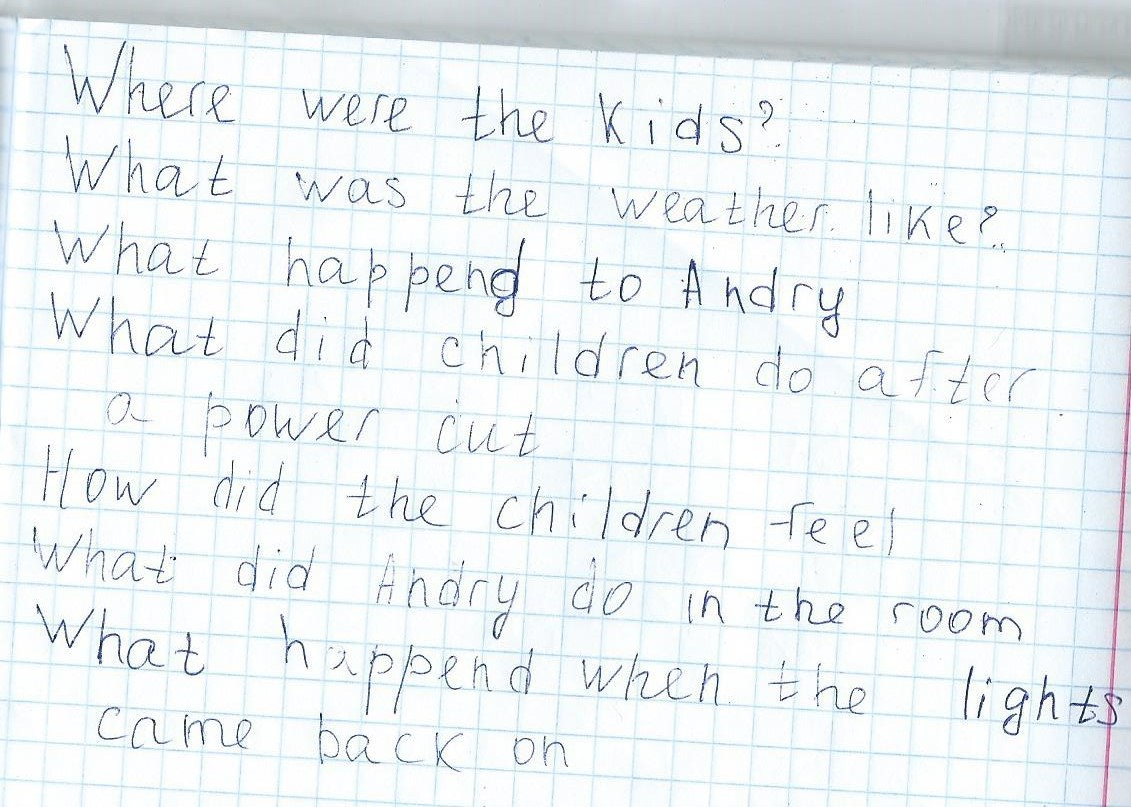 Where were the Kids?
What was the weather like?
What happend to Andry
What did children do after
a power cut
How did the children feel
What did Andry do in the room
What happend when the lights
came back on